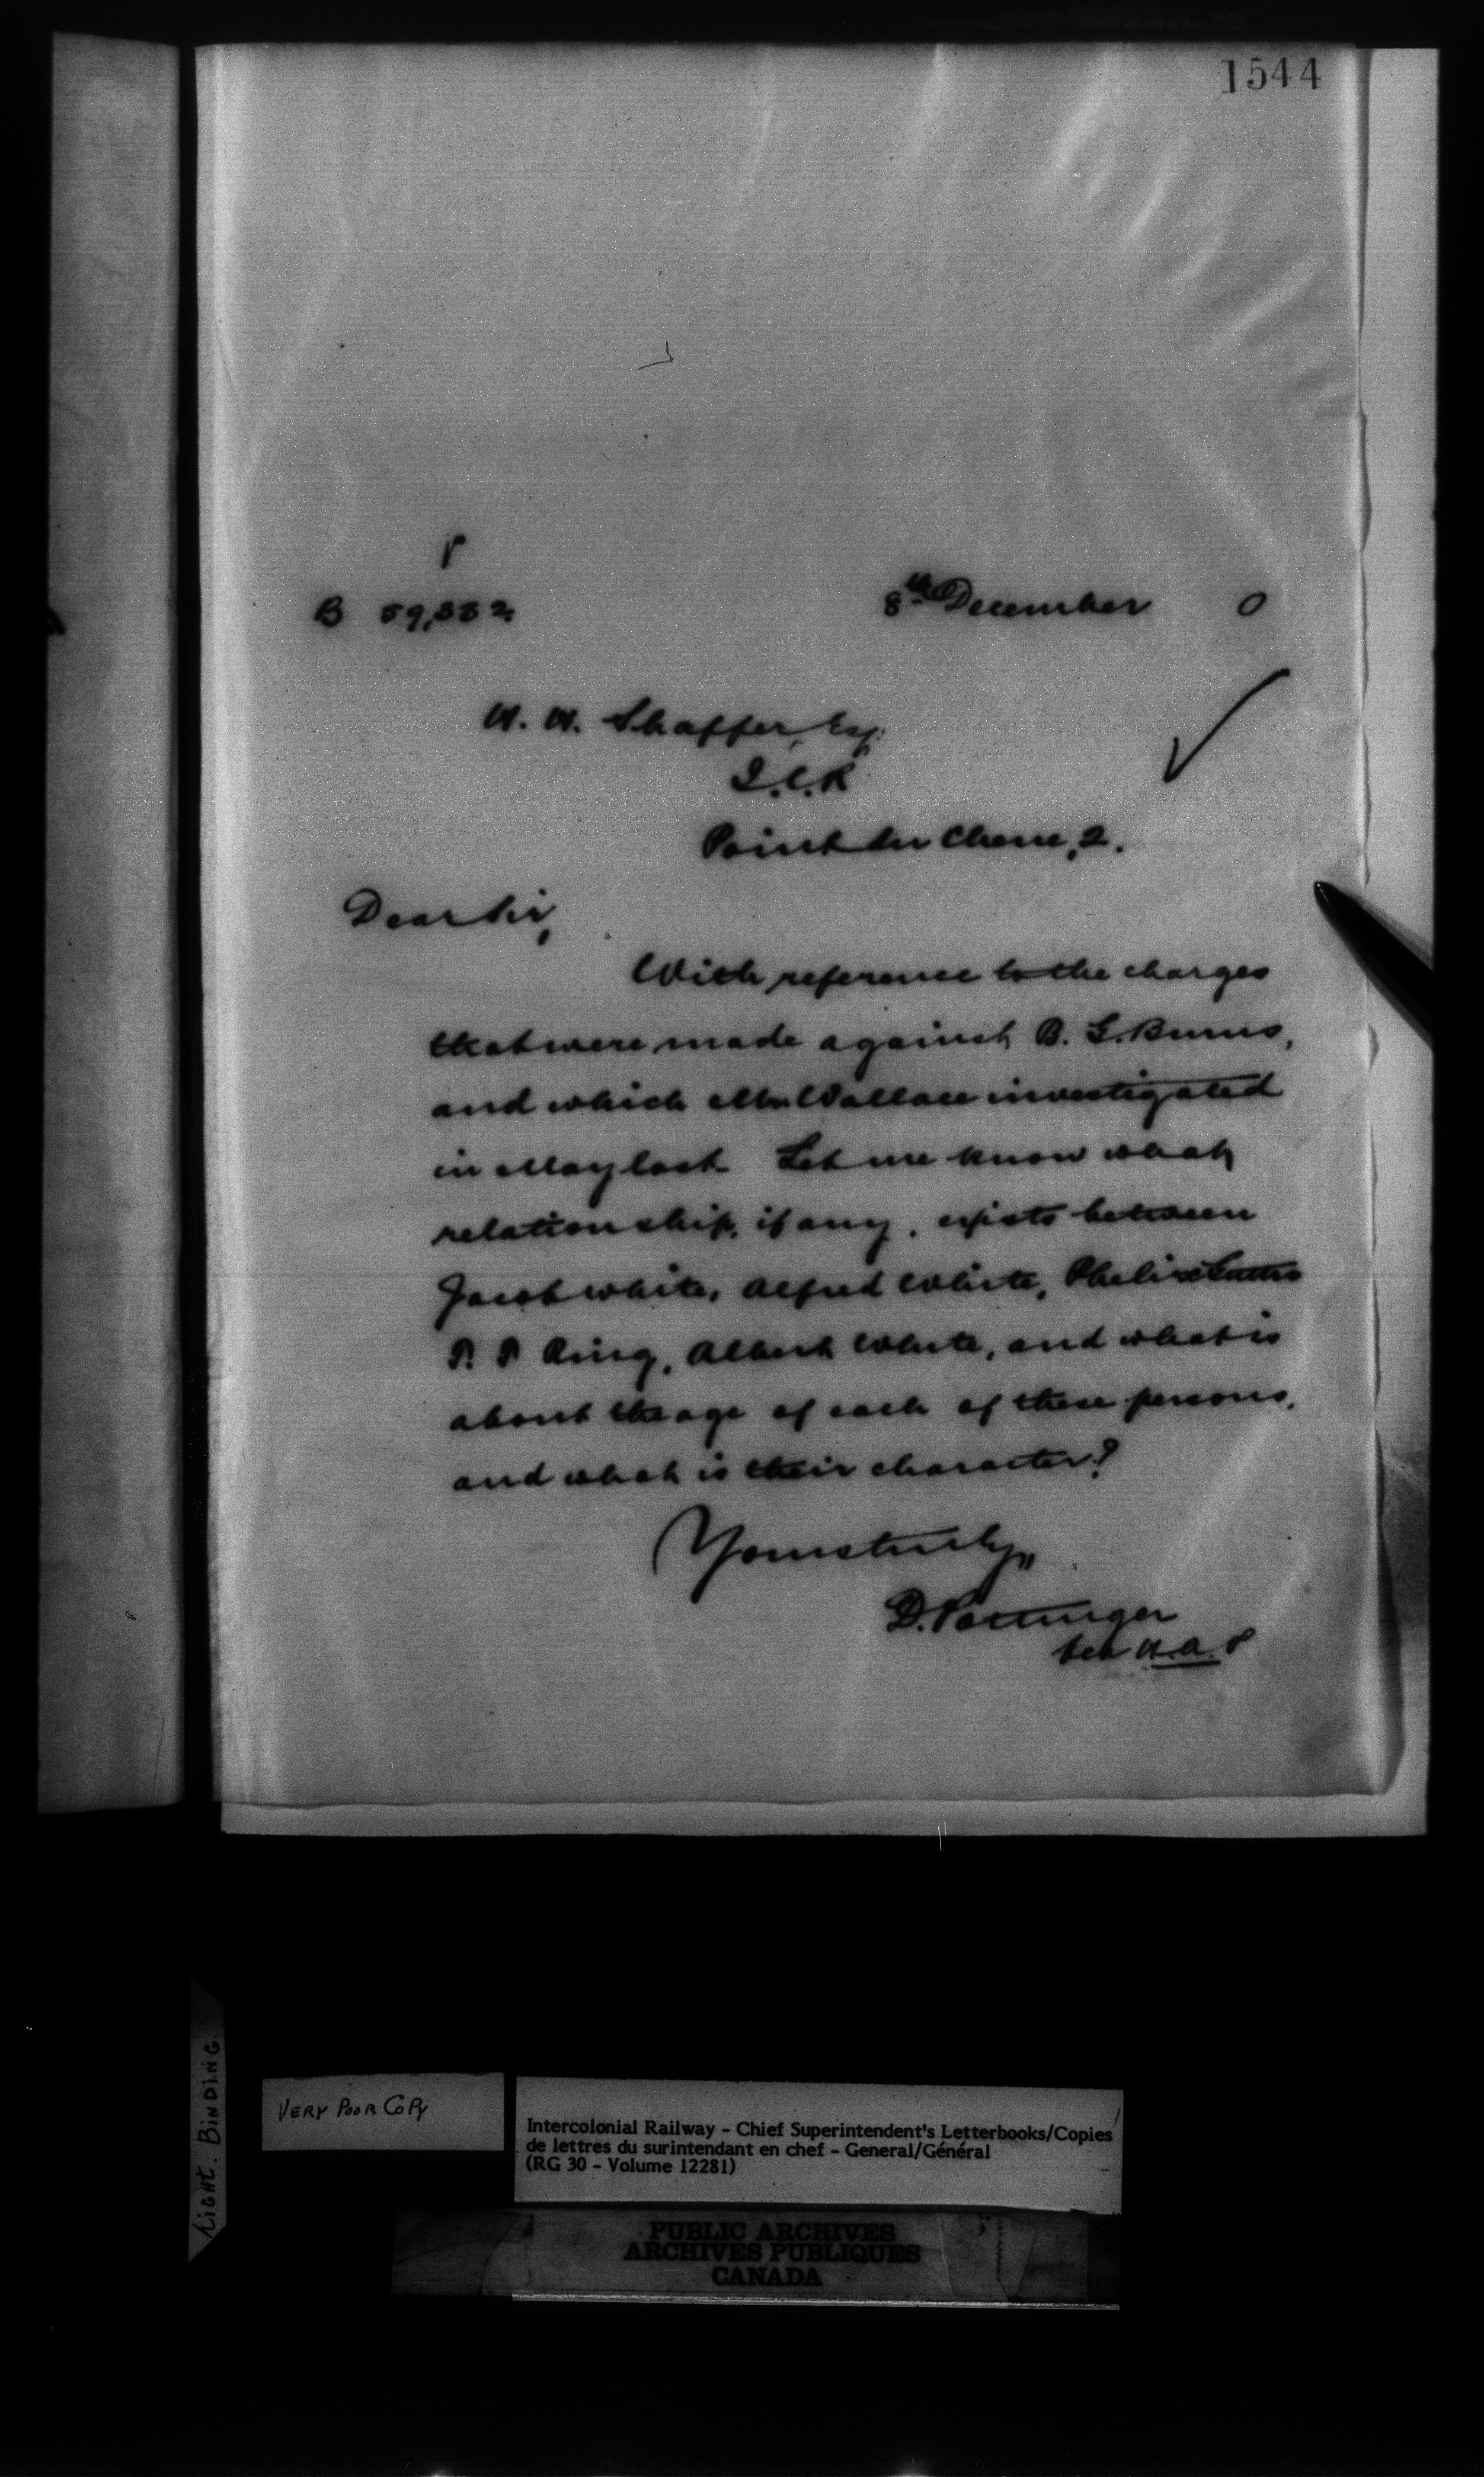 1544
B 59,332
8th December 0
W. W. Shaffer, Esq.
I.C.R
Point du Chene, 2.
Dear Sir,
With reference to the charges
that were made against B. G. Burns,
and which Mr. Wallace investigated
in May last. Let me know what
relationship, if any, exists between
Jacob White, Alfred White, Phelix
P. P King, Albert White, and what is
about the age of each of these persons,
and what is their character?
Yours truly,
D. Pottinger
W.A.P
TIGHT. BINDING.
VERY POOR COPY
Intercolonial Railway - Chief Superintendent's Letterbooks/Copies
de lettres du surintendant en chef - General/Général
(RG 30 - Volume 12281)
PUBLIC ARCHIVES
ARCHIVES PUBLIQUES
CANADA